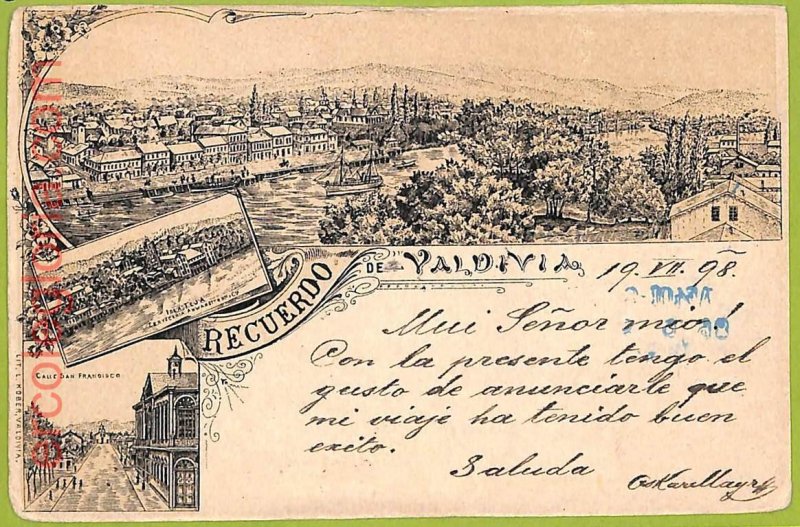 RECUERDO
DE VALDIVIA
19. VII. 98.
ISLA TEJA
CERVECERIA
CALLE SAN FRANCISCO.
LIT. L. KOBER, VALDIVIA.
Mui Señor mio!
Con la presente tengo el
gusto de anunciarle que
mi viaje ha tenido buen
exito.
Saluda
Oskar Mayr